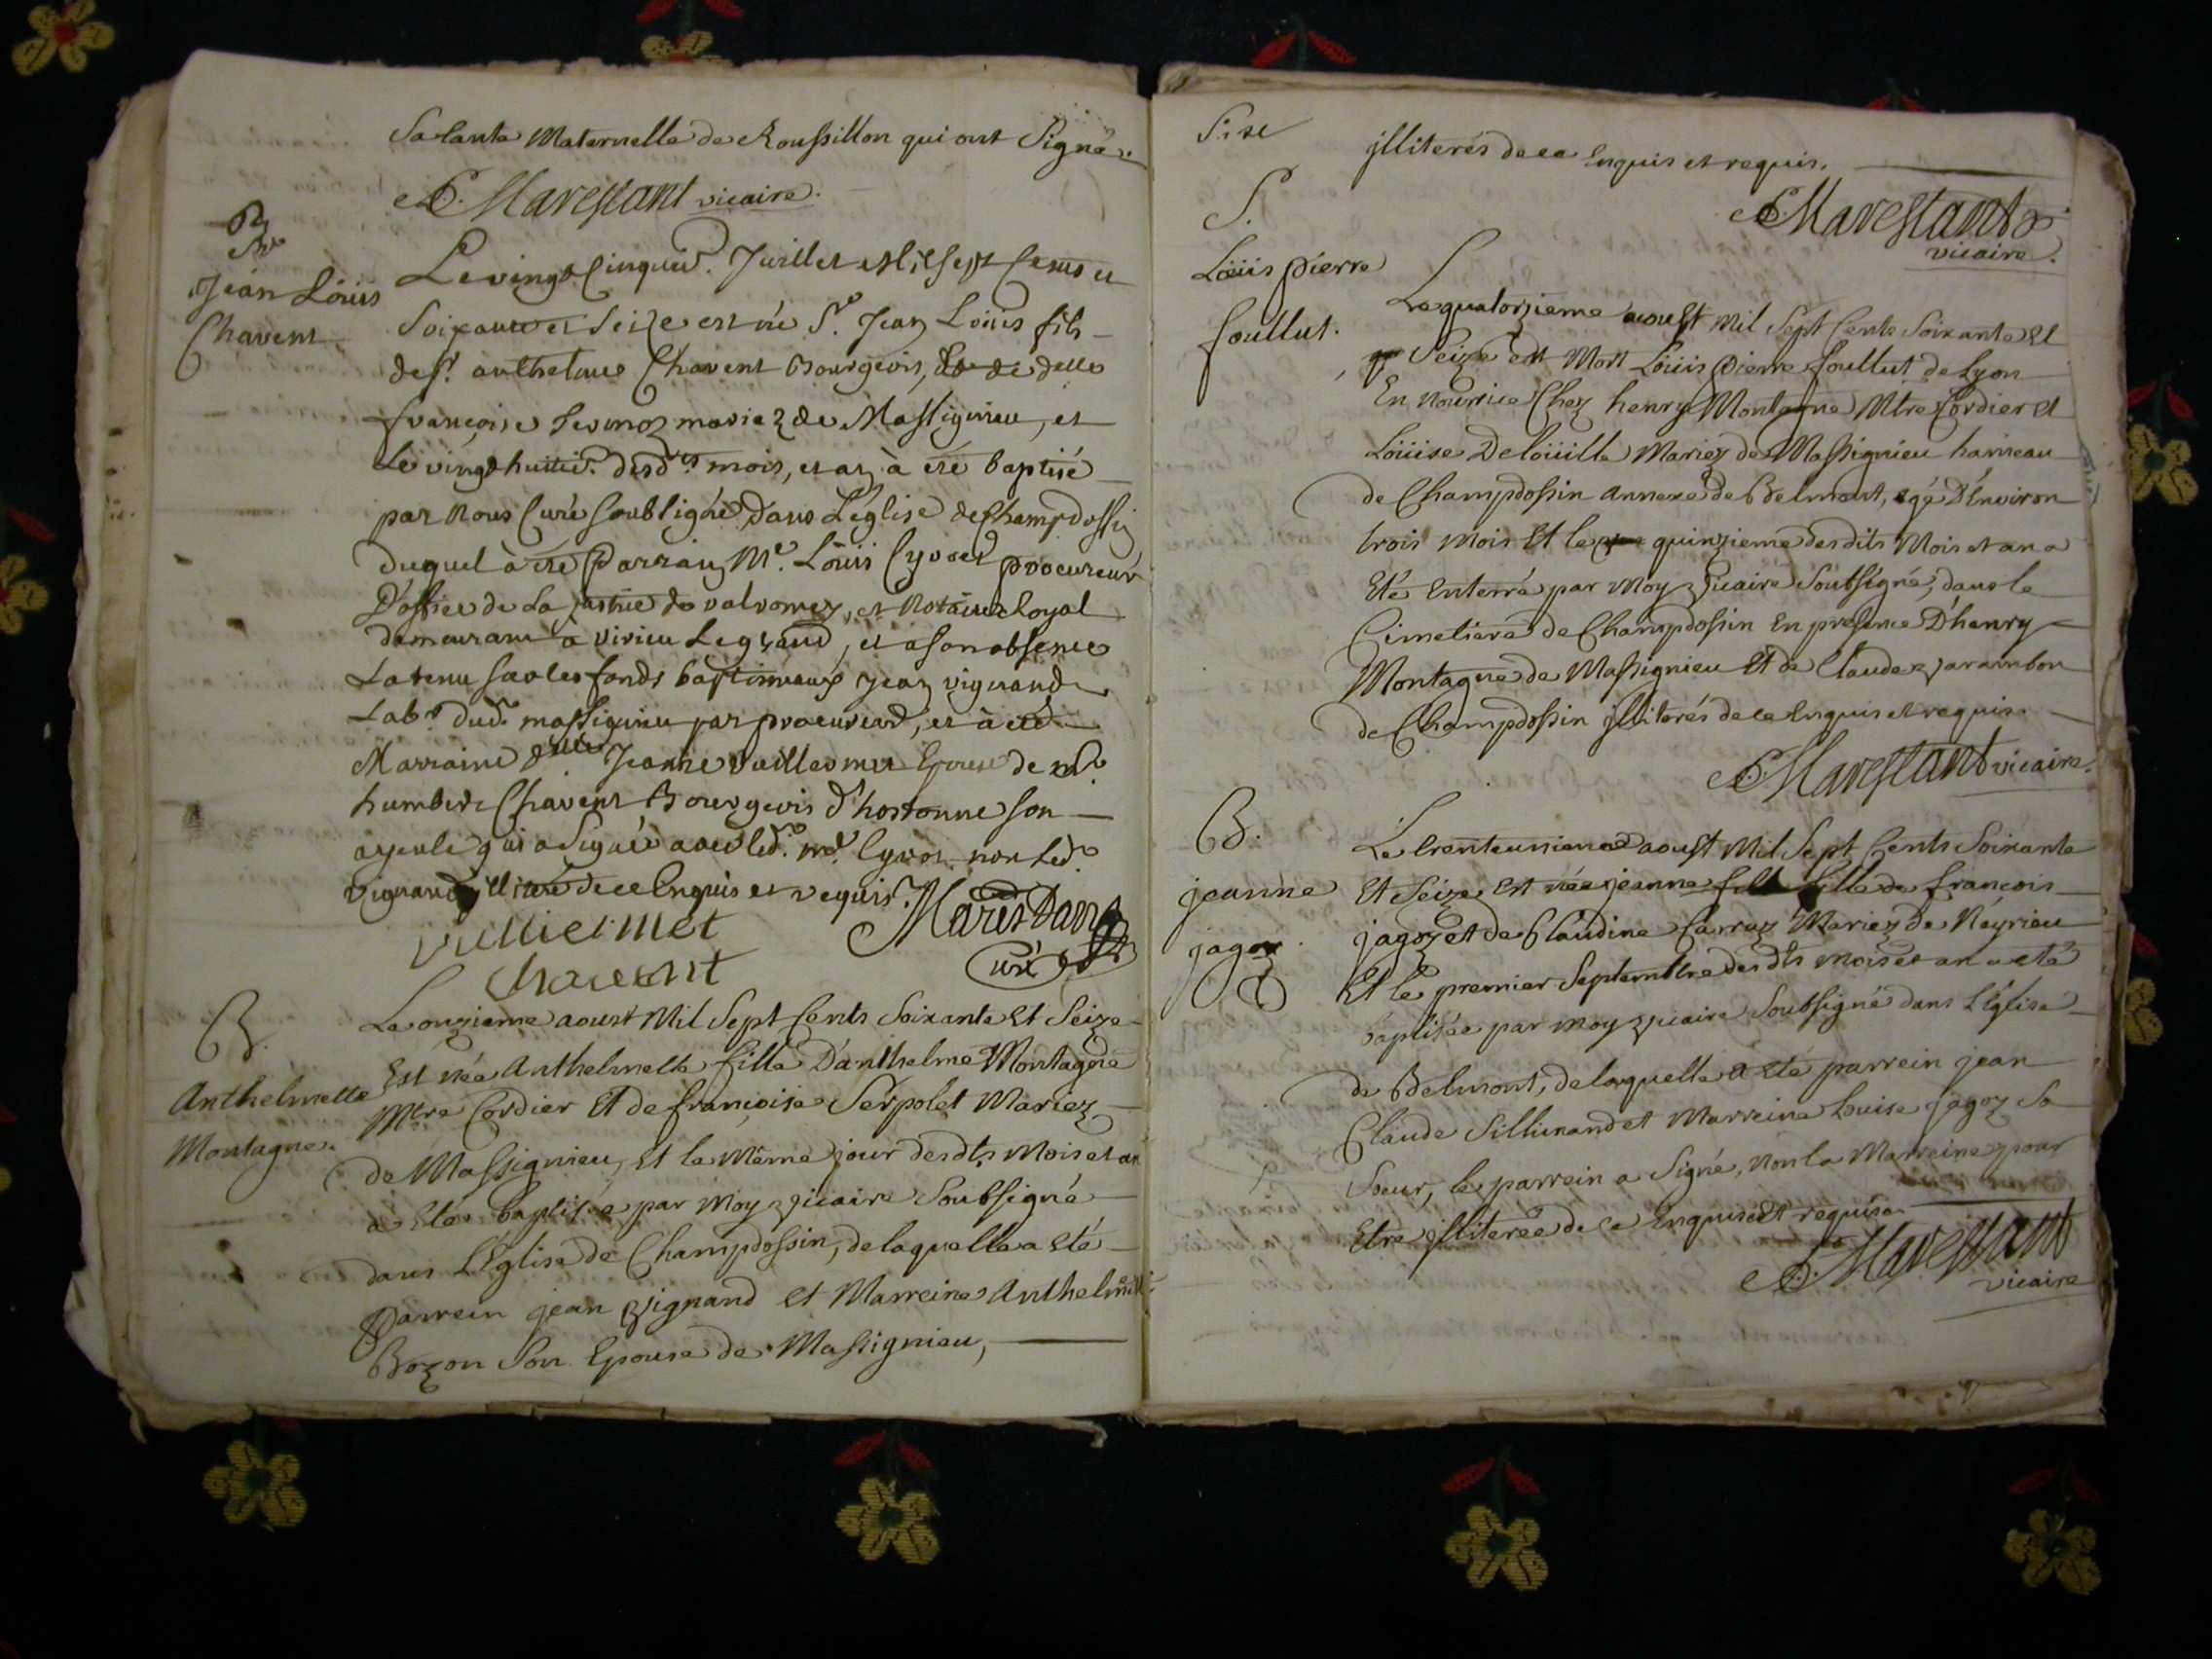 Sa tante Maternelle de Roussillon qui ont Signé.
Marestant vicaire.
B
Sr
Jean Loüis
Chavent
Le vingt Cinquie. Juillet Mil Sept Cents et
Soixante et Seize est né Sr. Jean Loüis fils
de Sr. anthelme Chavent Bourgeois, et de delle
françoise mariez de Massignieu, et
Le vingt huitie. desds mois, et an à été baptisé
par Nous Curé Soubsigné dans L'église de Champdossin
duquel à été Parrain Me. Loüis Cyvoct procureur
D'office de La justice de valromey, et Notaire Royal
demeurant à virieu Le grand, et a son absence
La tenu Sur les fonds baptismaux Jean vignand
Labr. dud. massignieu par procureur, et à été
Marraine delle Jeanne Vuillermet Epouse de mr.
humbert Chavent Bourgeois d'hostonne son
ayeule qui a Signé avec led. me. Cyvoct non led.
vignand illiteré de ce Enquis et requis.
vullielmet
chavent
Marestant
curé
B.
Anthelmette
Montagne.
Le onzieme aoust Mil Sept Cents Soixante Et Seize
Est née Anthelmette fille D'anthelme Montagne
Mtre Cordier Et de françoise Serpolet Mariez
de Massignieu, Et le Même jour desdts Mois et an
a Eté baptisée par Moy vicaire Soubsigné
dans L'Eglise de Champdossin, de laquelle a Eté
Parrein jean vignand et Marreine Anthelmette
Bozon Son Epouse de Massignieu,
illiterés de ce Enquis et requis.
Marestant
vicaire.
S.
Loüis pierre
foullut.
Le quatorzieme aoust Mil Sept Cents Soixante Et
Seize est Mort Loüis Pierre foullut de Lyon
En Nourrice Chez henry Montagne Mtre Cordier et
Loüise Deloüille Mariez de Massignieu hameau
de Champdossin annexe de Belmont, agé D'Environ
trois Mois Et le quinzieme desdits Mois et an a
Eté Enterré par Moy vicaire Soubsigné, dans le
Cimetiere de Champdossin En presence D'henry
Montagne de Massignieu Et de Claude jarambon
de Champdossin illiterés de ce Enquis et requis.
Marestant vicaire.
B.
jeanne
jagoz
Le trenteunieme aoust Mil Sept Cents Soixante
Et Seize Est née jeanne fille de françois
jagoz et de Claudine Carraz Mariez de Néyrieu
Et le premier Septembre desdts mois et an a eté
baptisée par Moy vicaire Soubsigné dans L'Eglise
de Belmont, de laquelle a Eté parrein jean
Claude Sillinand et Marreine Louise jagoz sa
Soeur, le parrein a Signé, Non la Marreine pour
Etre illiterée de ce Enquise Et requise
Marestant
vicaire